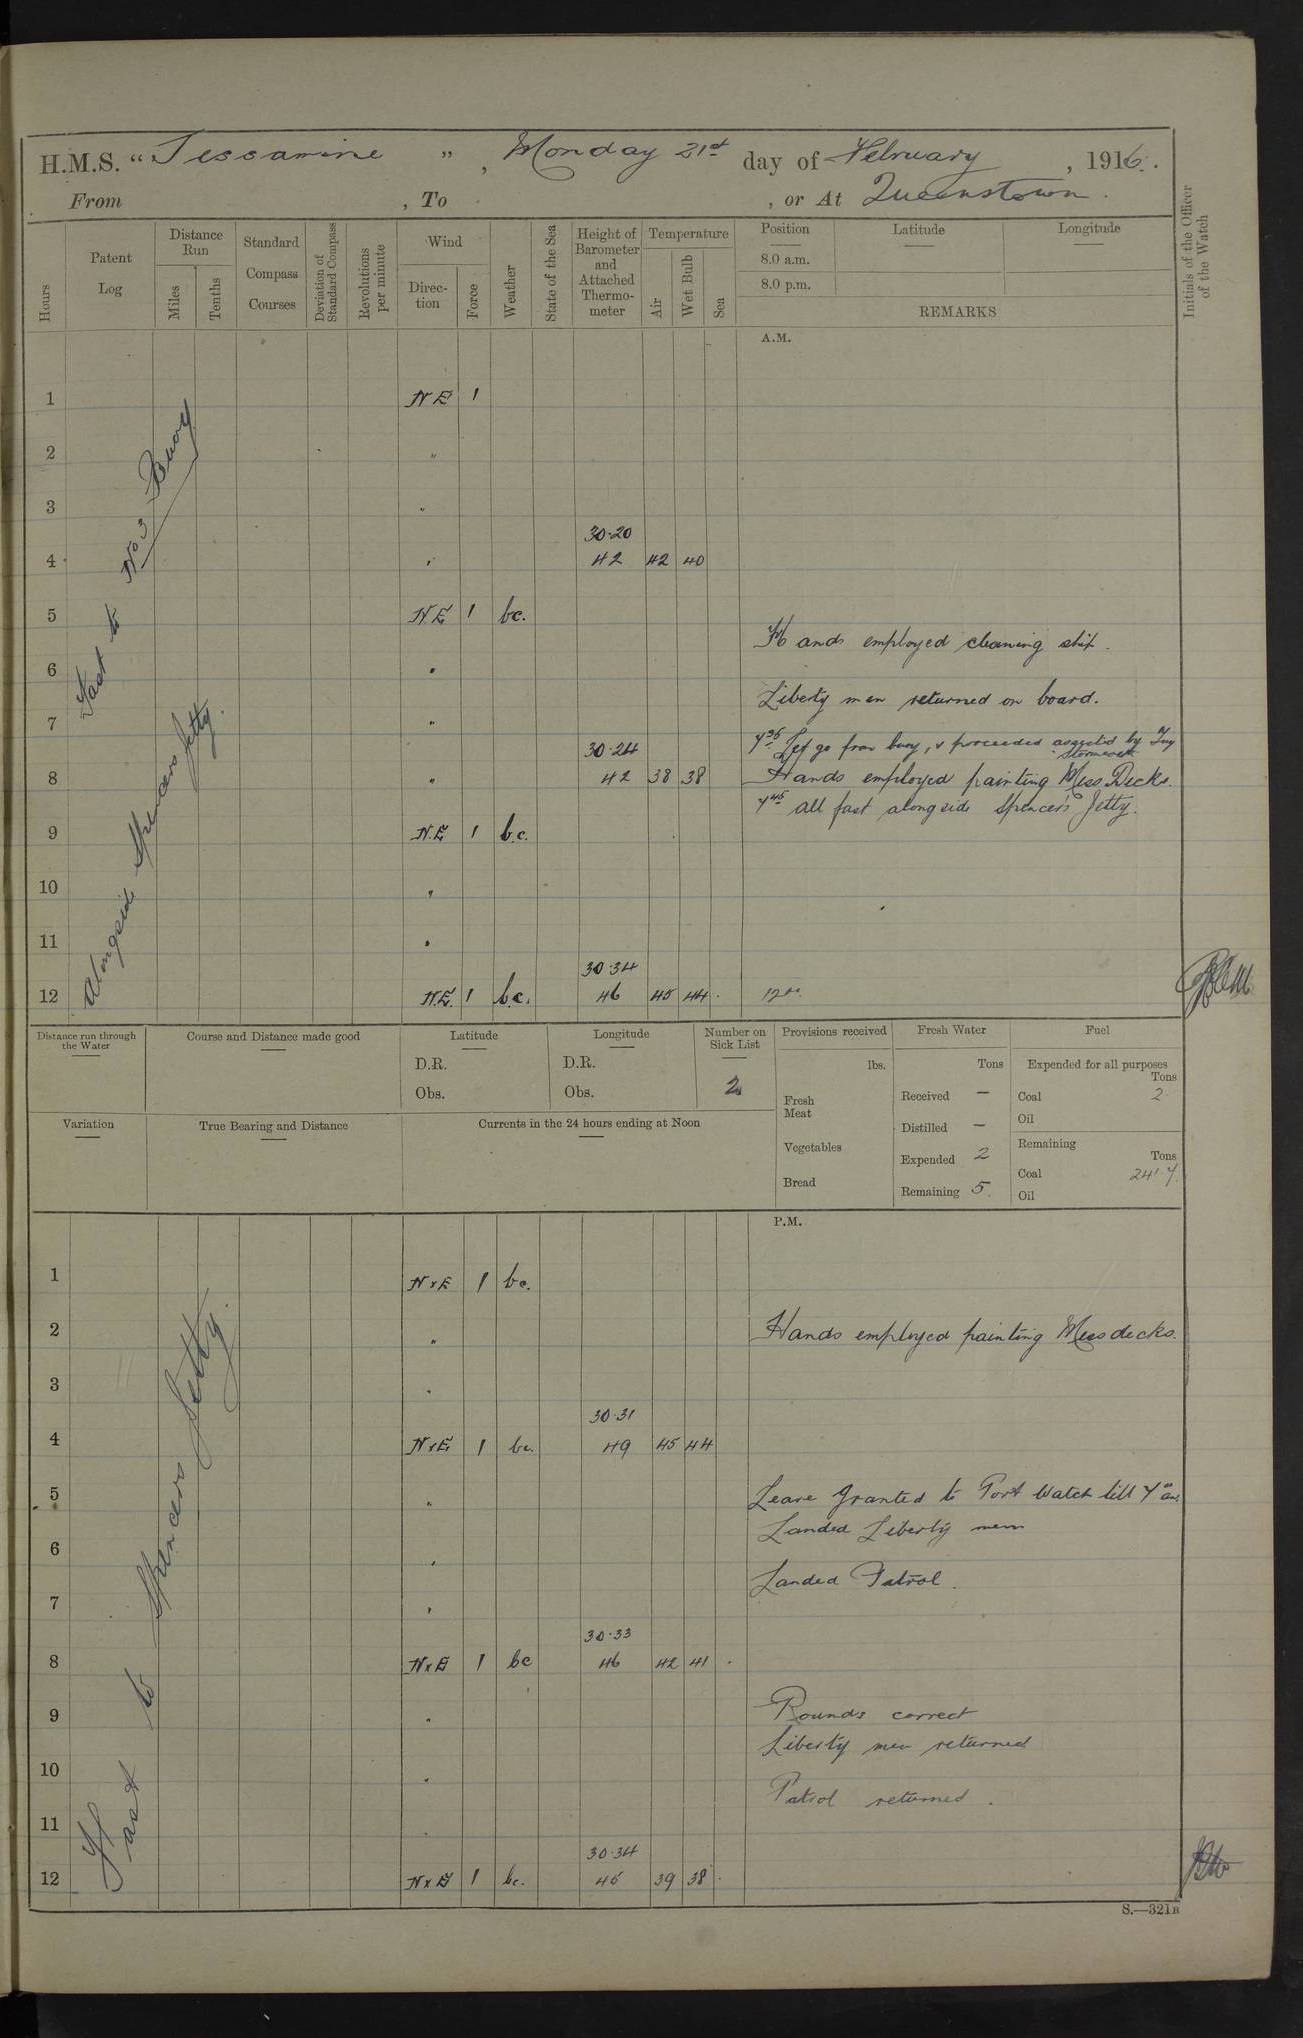 H.M.S. "Jessamine", Monday 21st day of February, 1916.
From , To , or At Queenstown.
Hours
Patent Log
Distance Run
Miles
Tenths
Standard Compass Courses
Deviation of Standard Compass
Revolutions per minute
Wind
Direction
Force
Weather
State of the Sea
Height of Barometer and Attached Thermometer
Temperature
Air
Wet Bulb
Sea
Position
8.0 a.m.
8.0 p.m.
Latitude
Longitude
REMARKS
Initials of the Officer of the Watch
A.M.
Fast to No 3 Buoy
Alongside Spencers Jetty.
1 NE 1
2 "
3 "
30.20
4 " 42 42 40
5 NE 1 bc.
Hands employed cleaning ship.
6 "
Liberty men returned on board.
7 "
7 35 Let go from buoy, & proceeded assisted by Tug
30.24
8 " 42 38 38 Hands employed painting Mess Decks.
7 45 all fast alongside Spencer's Jetty.
9 N.E 1 b.c.
10 "
11 "
30.34
12 N.E. 1 b.c. 46 45 44 12
Distance run through the Water
Course and Distance made good
Latitude
D.R.
Obs.
Longitude
D.R.
Obs.
Number on Sick List
2
Provisions received
lbs.
Fresh Meat
Vegetables
Bread
Fresh Water
Tons
Received —
Distilled —
Expended 2
Remaining 5
Fuel
Expended for all purposes
Tons
Coal 2
Oil
Remaining
Tons
Coal 241.7.
Oil
Variation
True Bearing and Distance
Currents in the 24 hours ending at Noon
P.M.
Fast to Spencers Jetty.
1 NxE 1 bc.
2 " Hands employed painting Mess decks.
3 "
30.31
4 NxE 1 bc. 49 45 44
5 " Leave granted to Port Watch till 7 am.
Landed Liberty men
6 "
Landed Patrol.
7 "
30.33
8 NxE 1 bc 46 42 41
9 " Rounds correct
Liberty men returned
10 "
Patrol returned.
11 "
30.34
12 NxE 1 bc. 45 39 38
S.—321B